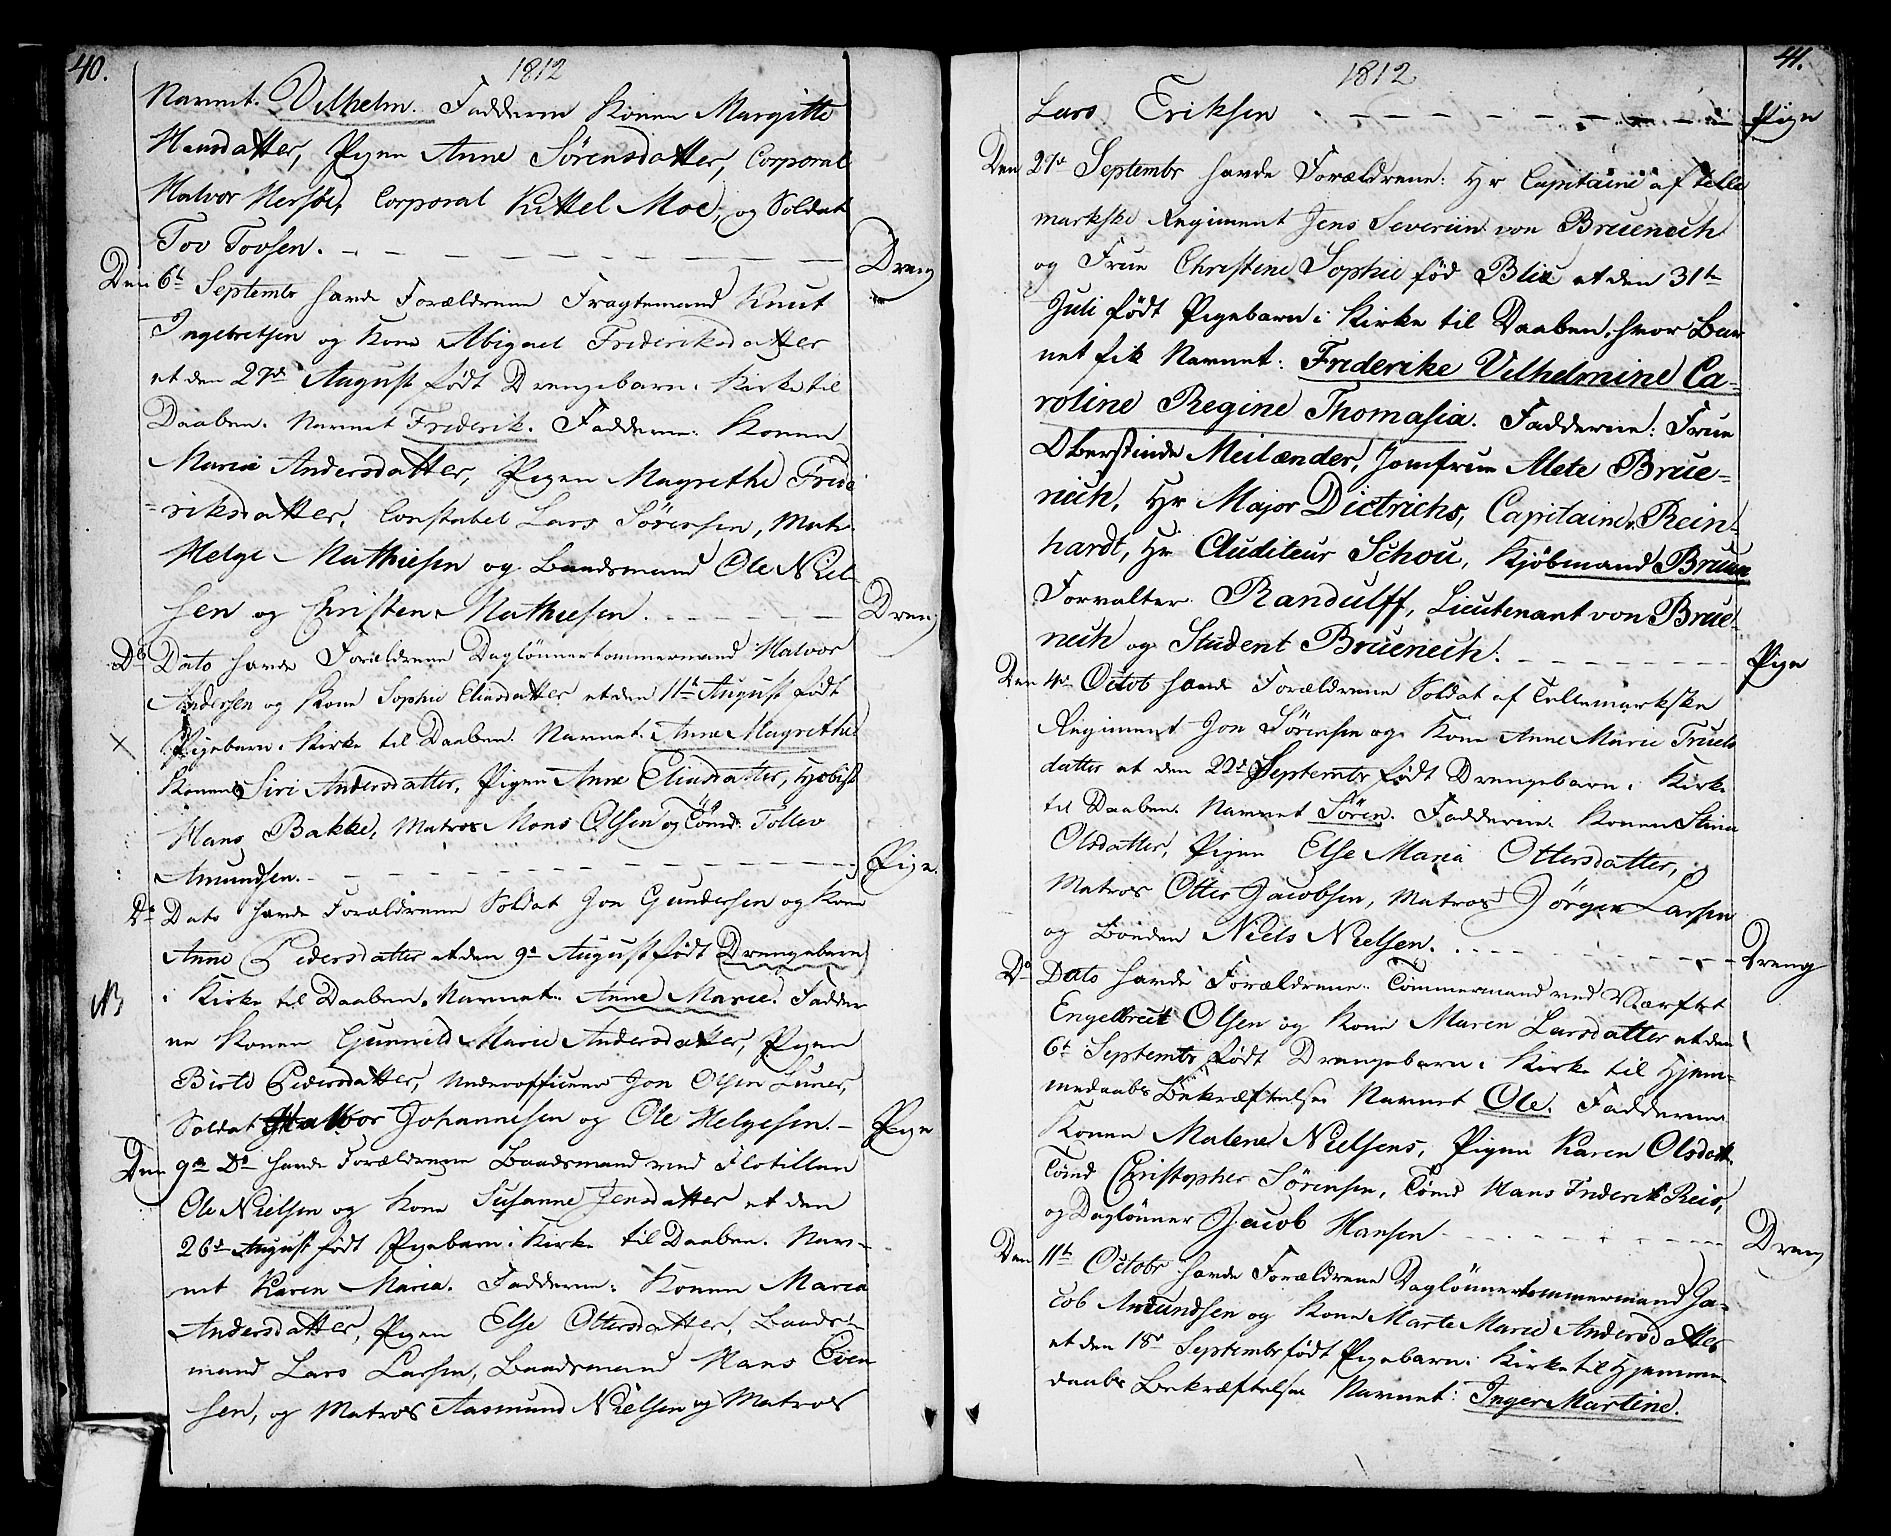 40.
1812
Navnet. Vilhelm. Fadderne Konen Margitte
Hansdatter, Pigen Anne Sørensdatter, Corporal
Halvor Hersøe, Corporal Kittel Moe, og Soldat
Tov Tovsen. Dreng
Den 6te Septembr havde Forældrene Fragtemand Knut
Ingebretsen og Kone Abigael Frideriksdatter
et den 27de August født Drengebarn i Kirke til
Daaben. Navnet Friderik. Fadderne: Konen
Maria Andersdatter, Pigen Magrethe Fride
riksdatter, Constabel Lars Sørensen, Math
Helge Mathiesen og Baadsmand Ole Niel-
sen og Christen Mathiesen. Dreng
Do Dato havde Forældrene Daglönnertømmermand Halvor
Andersen og Kone Sophie Eliasdatter et den 11te August født
Pigebarn i Kirke til Daaben. Navnet. Anne Magrethe
Konen Siri Andersdatter, Pigen Anne Eliasdatter,
Hans Bakke, Matros Mons Olsen og Tömd. Tollev
Amundsen. Pige.
Do Dato havde Forældrene Soldat Jon Gundersen og Kone
Anne Pedersdatter et den 9de August født Drengebarn
NB i Kirke til Daaben. Navnet. Anne Marie. Fadder
ne Konen Gunneld Marie Andersdatter, Pigen
Birte Pedersdatter, Underofficeer Jon Olsen
Soldat Halvor Johannesen og Ole Helgesen. Pige
Den 9de Do havde Forældrene Baadsmand ved Flotillen
Ole Nielsen og Kone Susanne Jensdatter et den
26de August født Pigebarn i Kirke til Daaben. Nav-
net Karen Maria. Fadderne: Konen Maria
Andersdatter, Pigen Else Ottersdatter, Baads-
mand Lars Larsen, Baadsmand Hans Even
sen, og Matros Aasmund Nielsen og Matros
41.
1812
Lars Eriksen Pige
Den 27de Septembr havde Forældrene: Hr Capitaine af Telle
markske Regiment Jens Severiin von Bruenech
og Frue Christine Sophie fød Blix et den 31te
Juli født Pigebarn i Kirke til Daaben, hvor Bar
net fik Navnet: Friderike Vilhelmine Ca-
roline Regine Thomasia. Fadderne: Frue
Oberstinde Meilænder, Jomfrue Alete Brue-
nech, Hr Major Dietrichs, Capitaine Rein-
hardt, Hr Auditeur Schou, Kjøbmand Bruun
Forvalter Randulff, Lieutenant von Brue-
nech og Student Bruenech. Pige
Den 4de Octob havde Forældrene Soldat af Tellemarkske
Regiment Jon Sörensen og Kone Anne Marie Truels
datter et den 22de Septembr født Drengebarn i Kirke
til Daaben. Navnet Sören. Fadderne. Konen Stina
Olsdatter, Pigen Else Maria Ottersdatter,
Matros Otter Jacobsen, Matros Jörgen Larsen
og Bonden Niels Nielsen. Dreng
Do Dato havde Forældrene: Tömmermand ved Værftet
Engelbrect Olsen og Kone Maren Larsdatter et den
6te Septembr født Drengebarn i Kirke til Hjem-
medaabs Bekræftelse Navnet Ole. Fadderne
Konen Malene Nielsens, Pigen Karen Olsdatt.
Tömd Christopher Sörensen, Tömd Hans Friderik Reis,
og Daglönner Jacob Hansen Dreng
Den 11te Octobr havde Forældrene Daglönnertømmermand Ja-
cob Amundsen og Kone Marte Marie Andersdatter
et den 18de Septembr født Pigebarn i Kirke til Hjemme-
daabs Bekræftelse Navnet: Inger Martine.